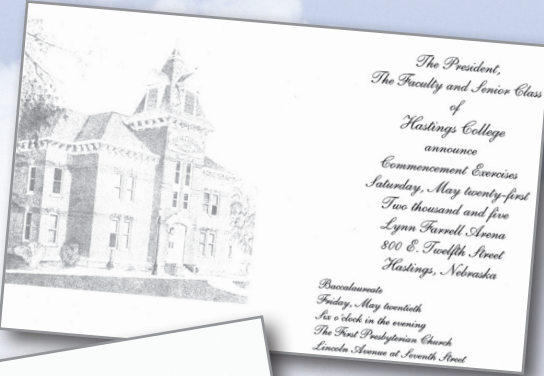 The President,
The Faculty and Senior Class
of
Hastings College
announce
Commencement Exercises
Saturday, May twenty-first
Two thousand and five
Lynn Farrell Arena
800 E. Twelfth Street
Hastings, Nebraska
Baccalaureate
Friday, May twentieth
Six o'clock in the evening
The First Presbyterian Church
Lincoln Avenue at Seventh Street